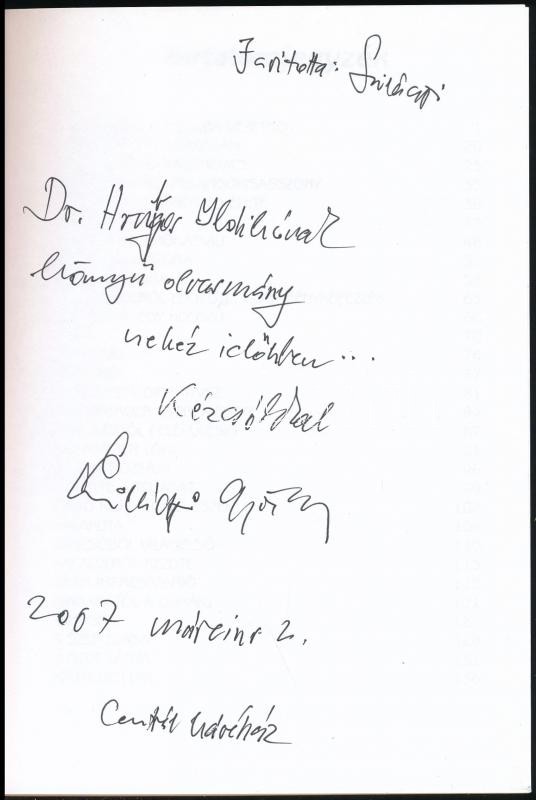 Javította: Szilágyi
Dr. Hrutka Ildikónak
könnyű olvasmány
nehéz időkben...
Kézcsókkal
Szilágyi György
2007 március 2.
Centrál kávéház